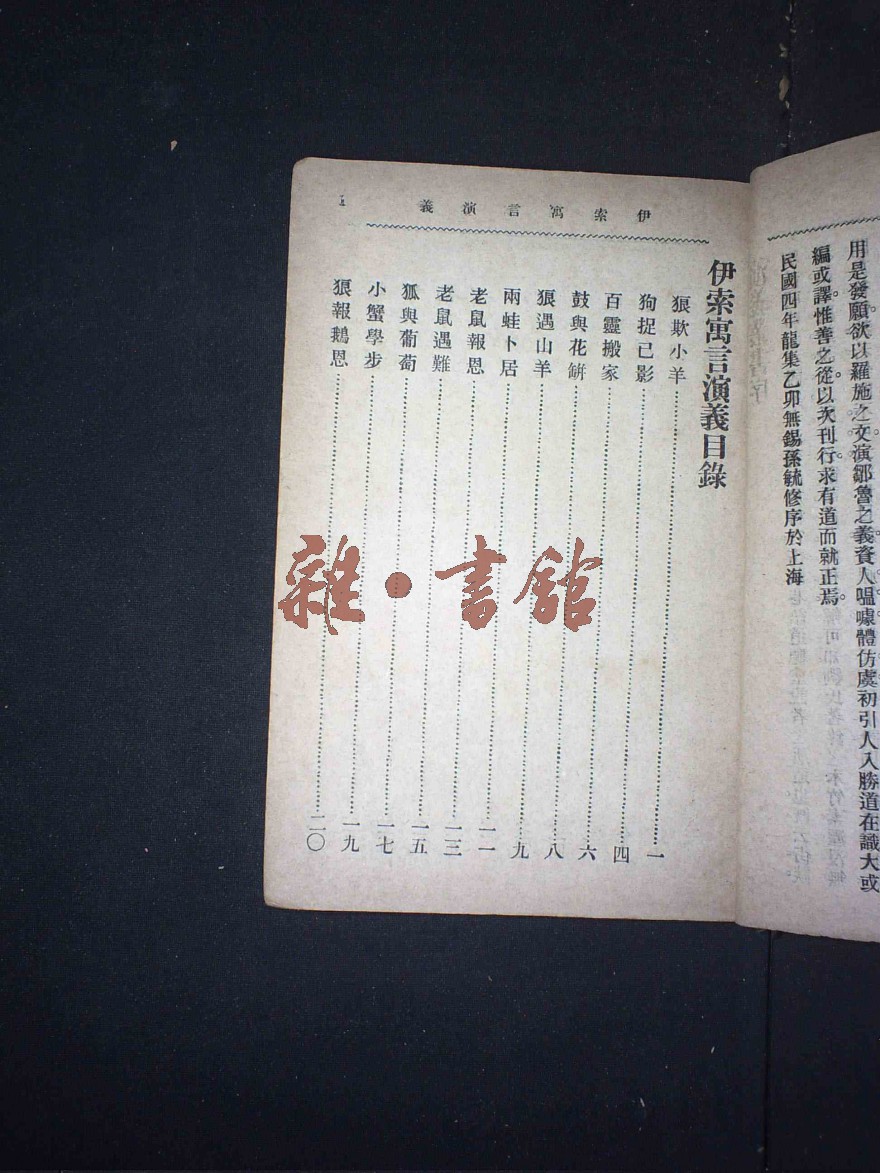 用是發願欲以羅施之文演鄒魯之義資人嗢噱體仿虞初引人入勝道在識大或
編或譯惟善之從以次刊行求有道而就正焉
民國四年龍集乙卯無錫孫毓修序於上海
伊索寓言演義
伊索寓言演義目錄
狠欺小羊 一
狗捉己影 四
百靈搬家 六
鼓與花缾 八
狠遇山羊 九
兩蛙卜居 一一
老鼠報恩 一三
老鼠遇難 一五
狐與葡萄 一七
小蟹學步 一九
狠報鵝恩 二〇
雜·書館